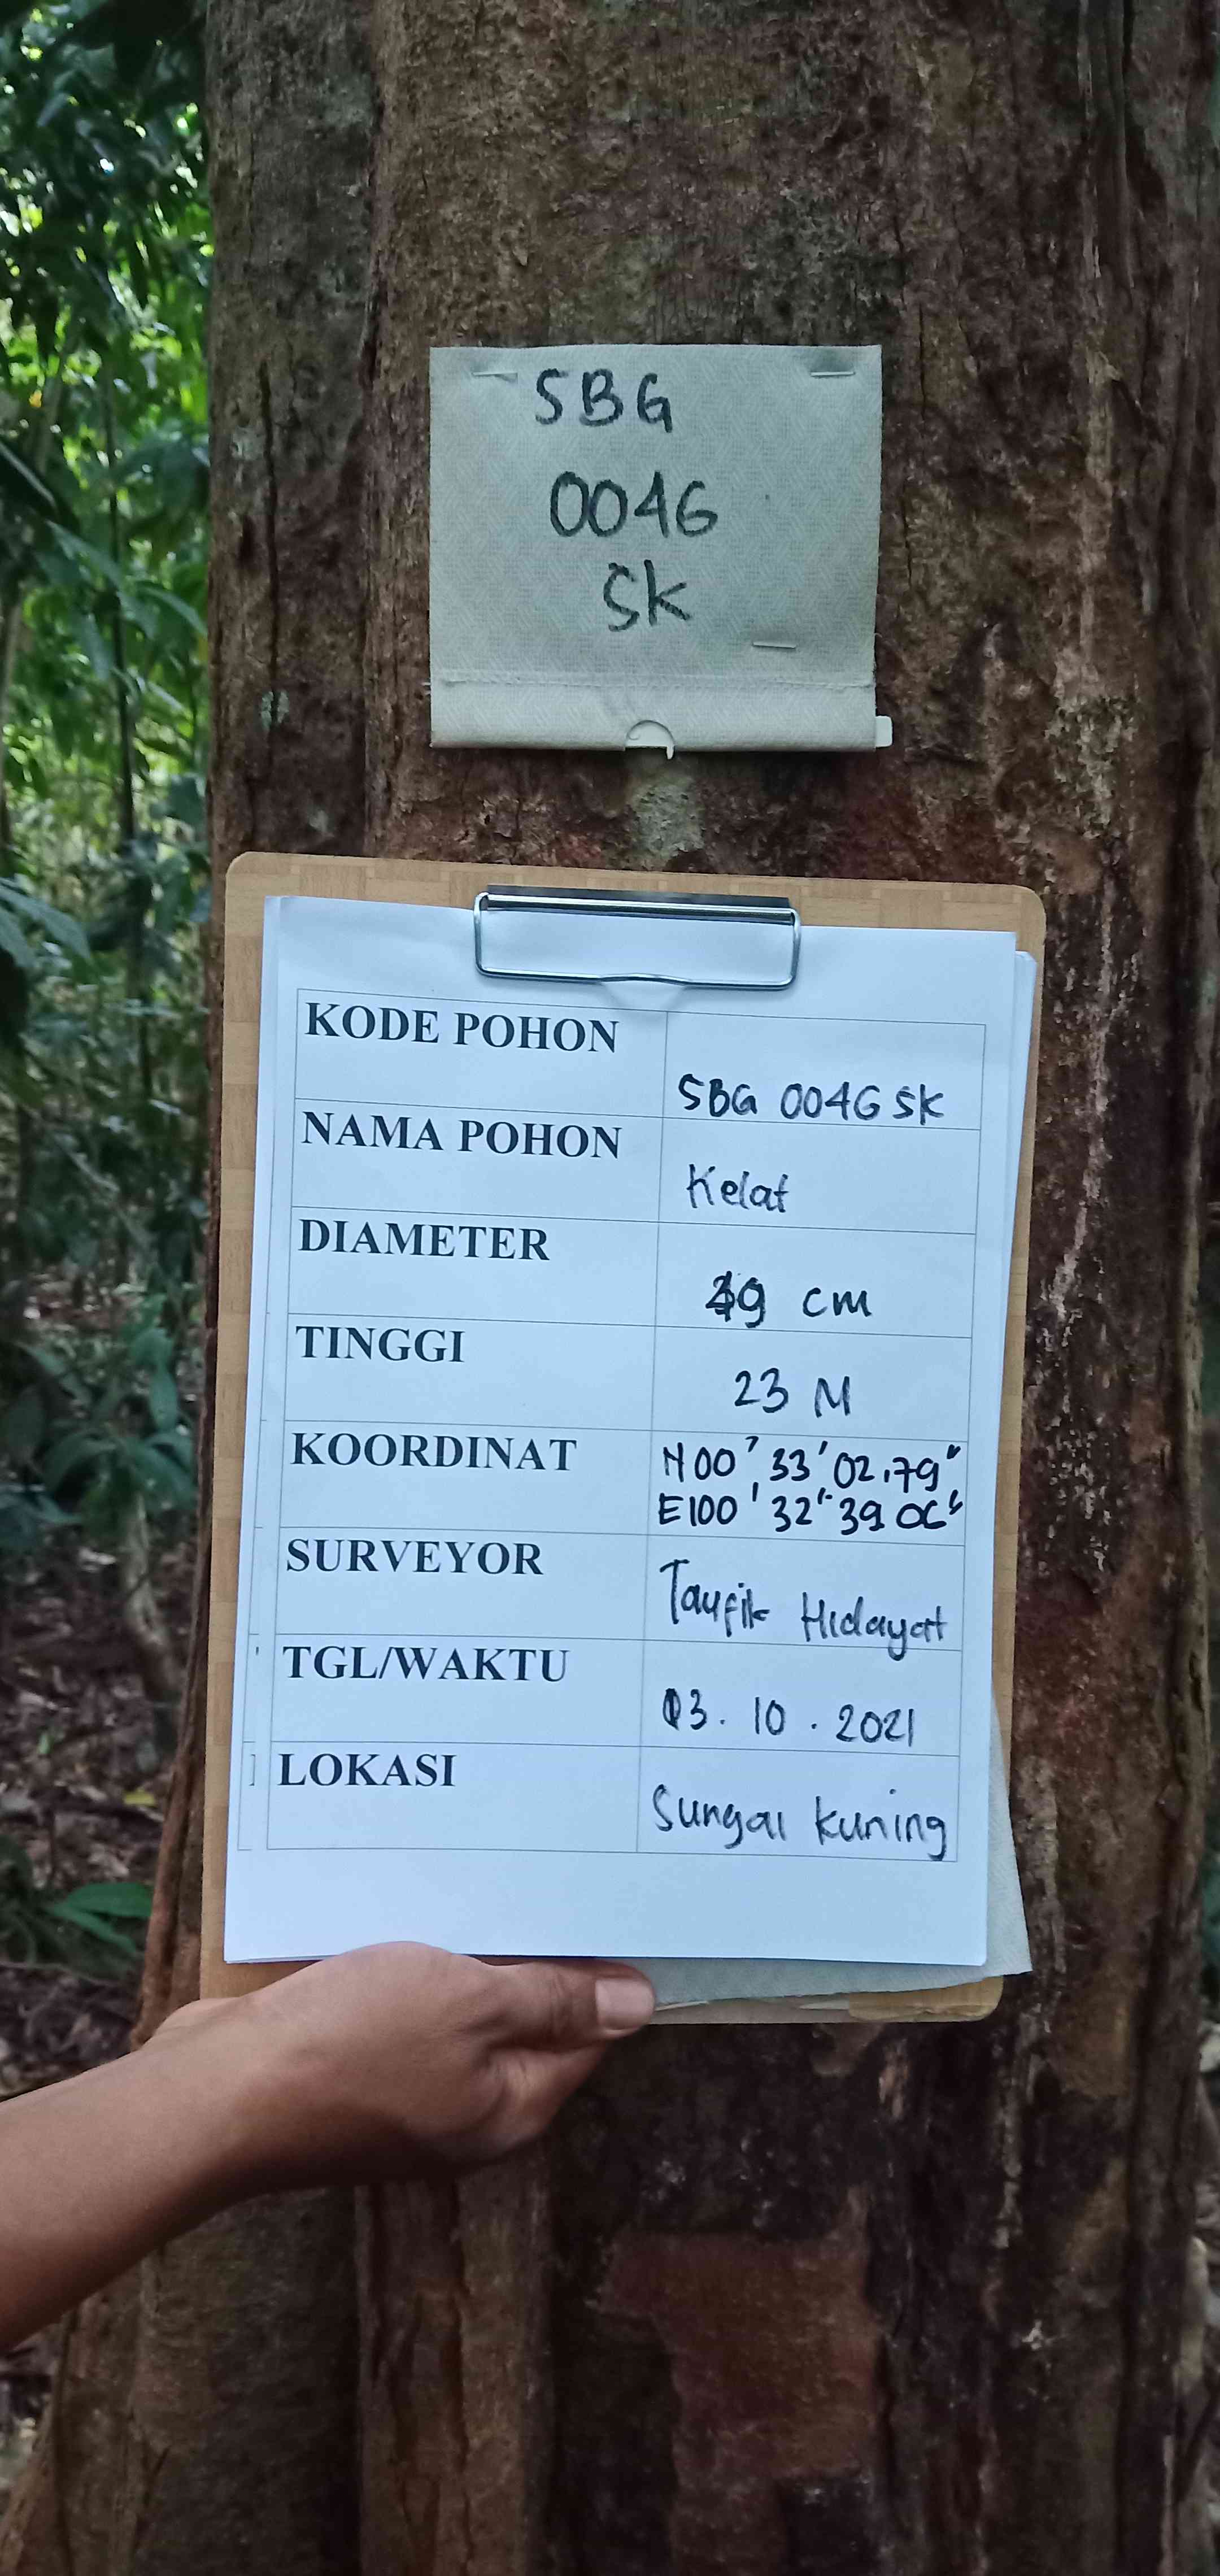 SBG
0046
SK
KODE POHON
SBG 0046 SK
NAMA POHON
Kelat
DIAMETER
49 cm
TINGGI
23 M
KOORDINAT
N00° 33' 02.79"
E100' 32' 39
SURVEYOR
Taufik Hidayat
TGL/WAKTU
03. 10 . 2021
LOKASI
Sungai kuning